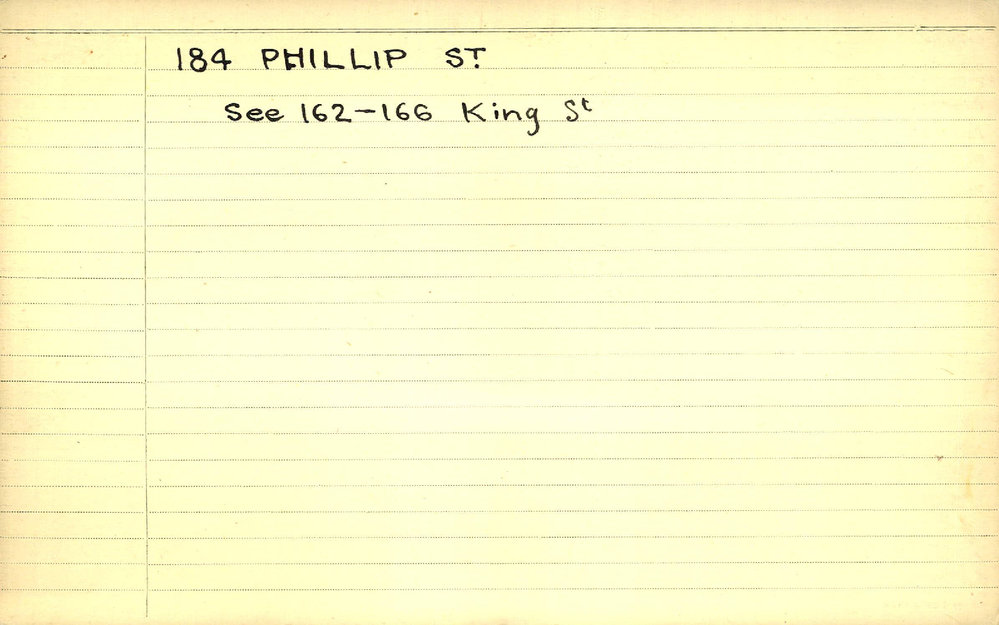 184 PHILLIP ST
See 162-166 King St